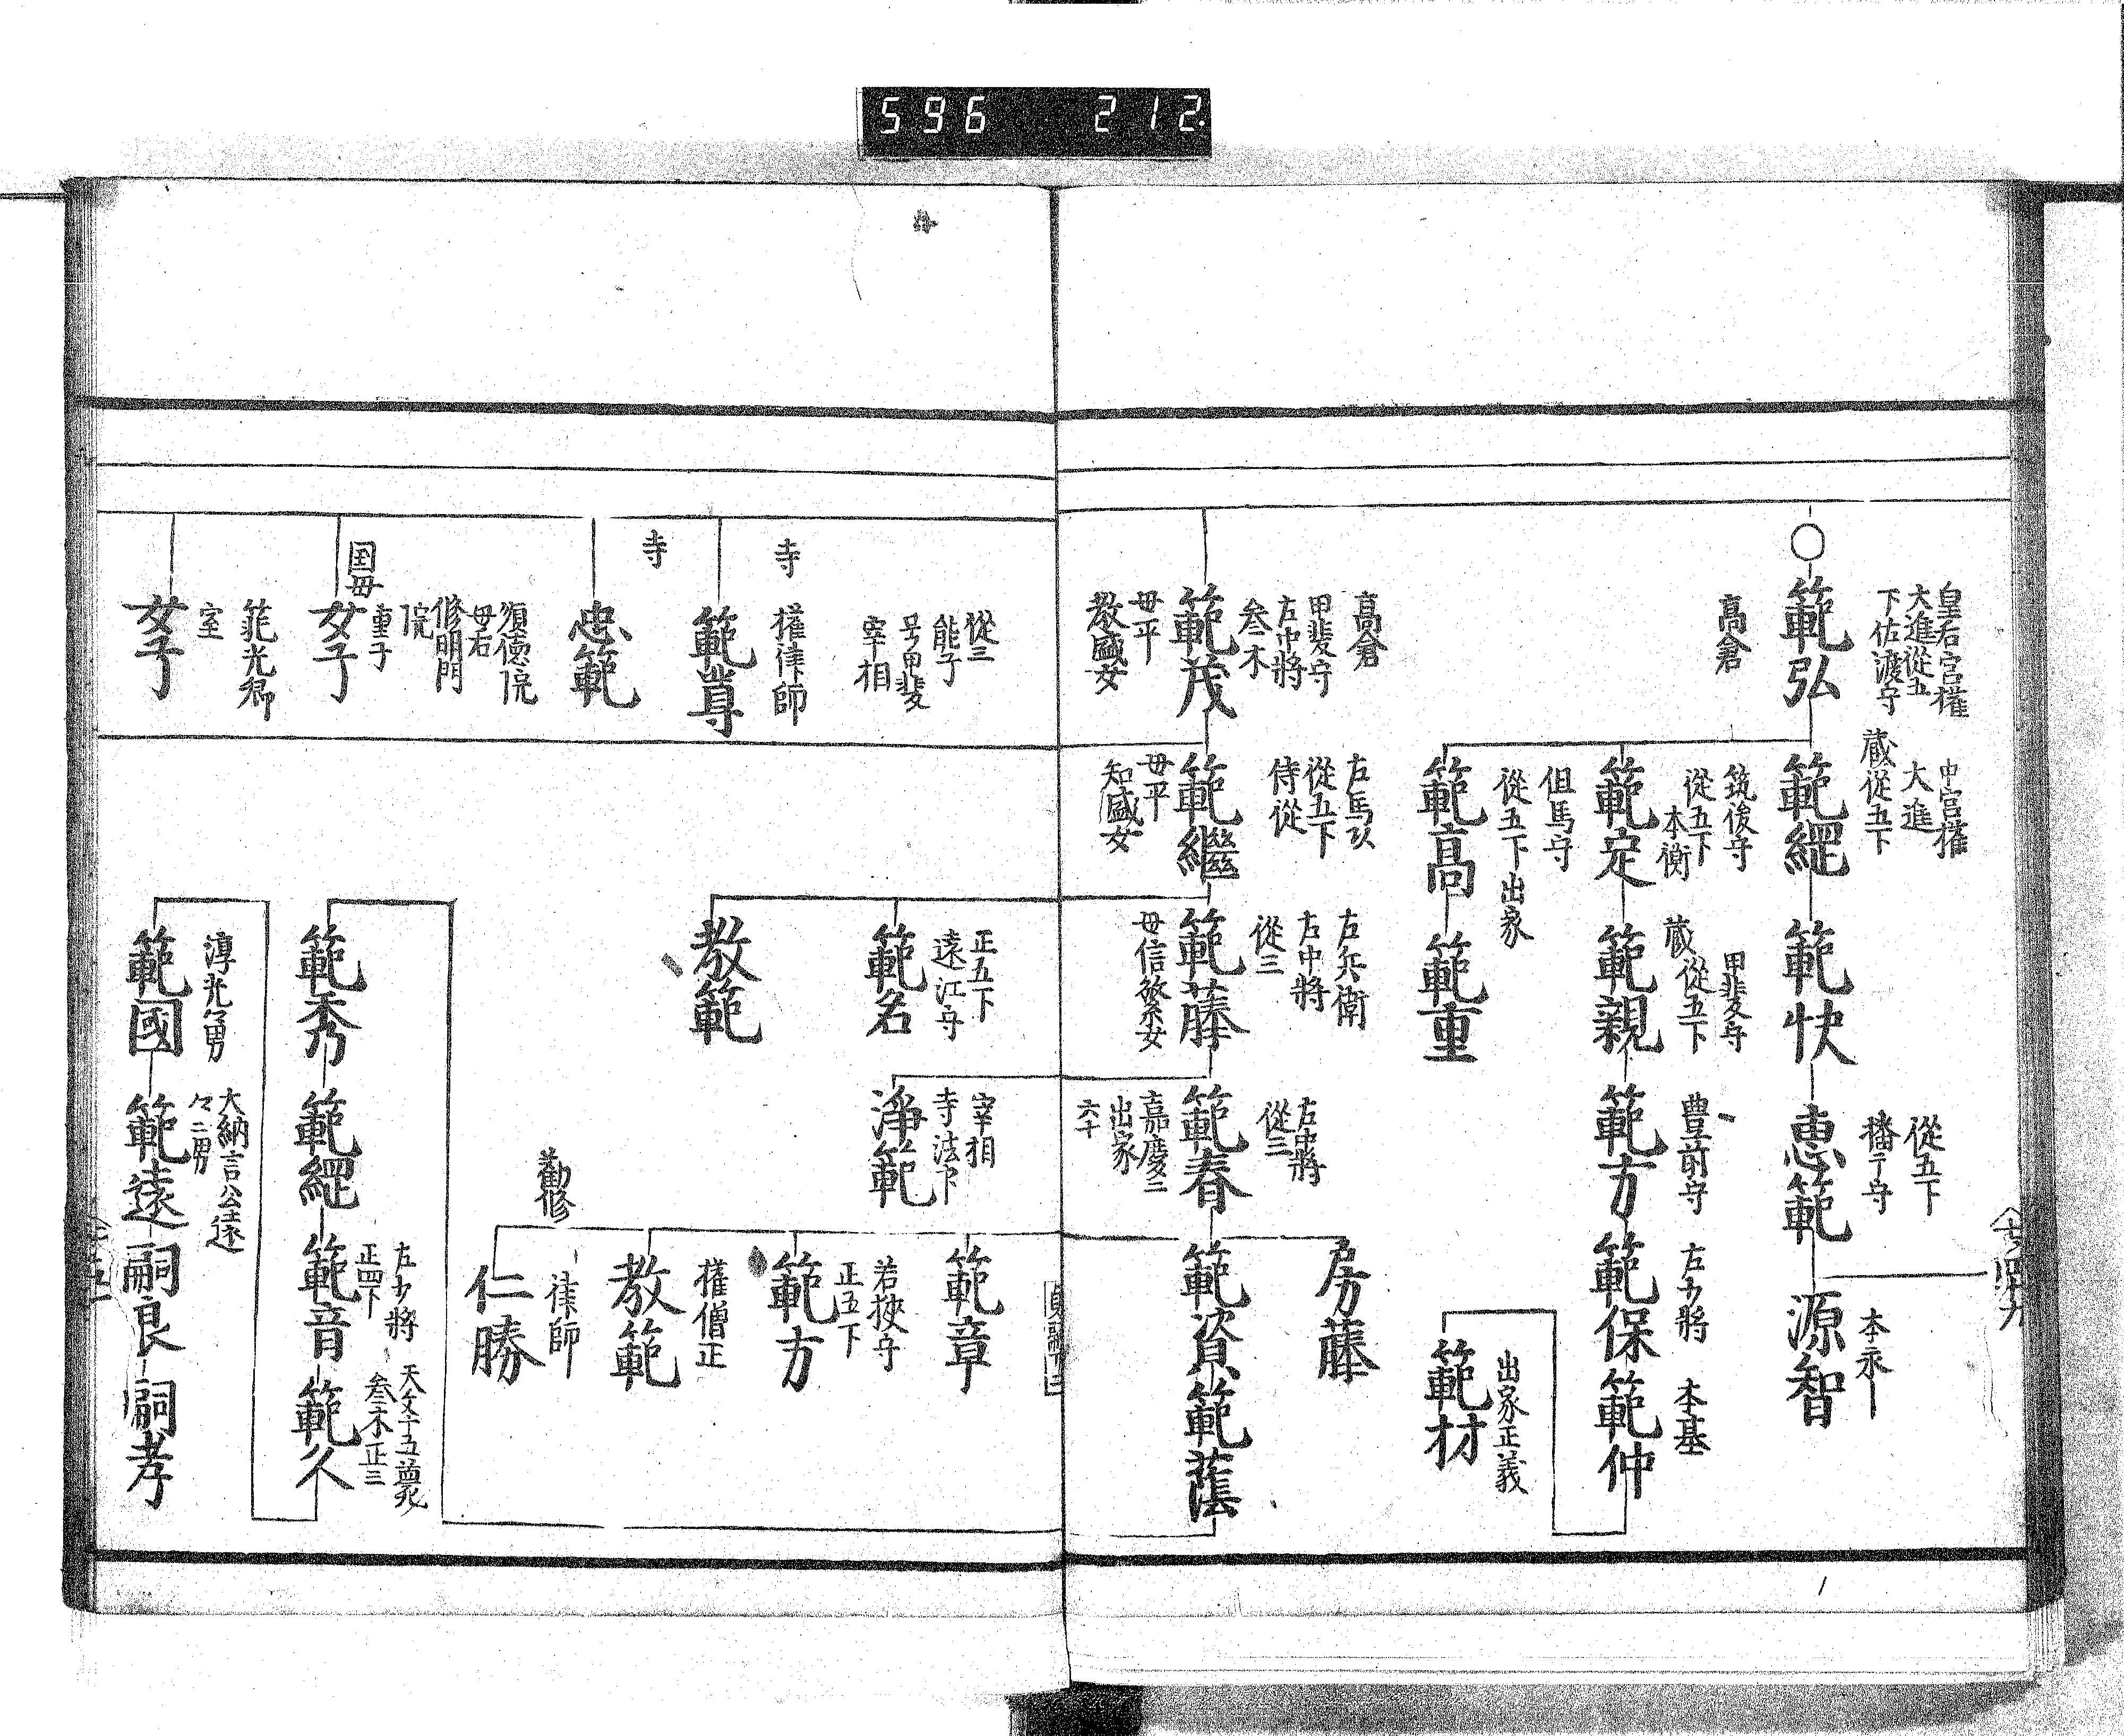 596 212
皇后宮権
大進從五
下佐渡守
範弘
中宮権
大進
蔵從五下
範繩
範快
從五下
播广守
惠範
本永
源智
高倉
筑後守
從五下
本衡
範定
甲斐守
蔵從五下
範親
豊前守
範方
左少將
範保
本基
範仲
但馬守
從五下出家
範高
範重
出家正義
範材
高倉
甲斐守
左中將
叅木
範茂
母平
教盛女
左馬
從五下
侍從
範繼
母平
知盛女
左兵衛
左中將
從三
範藤
母信繁女
左中將
從三
範春
嘉慶三
出家
六十
房藤
範資
範蔭
從三
能子
号甲斐
宰相
寺
権律師
範尊
寺
忠範
須德院
母后
修明門
院
国母
重子
女子
範光卿
室
女子
正五下
遠江守
範名
教範
宰相
寺法下
淨範
範章
若狹守
正五下
範方
権僧正
教範
勸修
律師
仁勝
範秀
範繩
左少將
正四下
範音
天文十五薨
叅木正三
範久
淳光男
範國
大納言公遠
々二男
範遠
嗣良
嗣孝